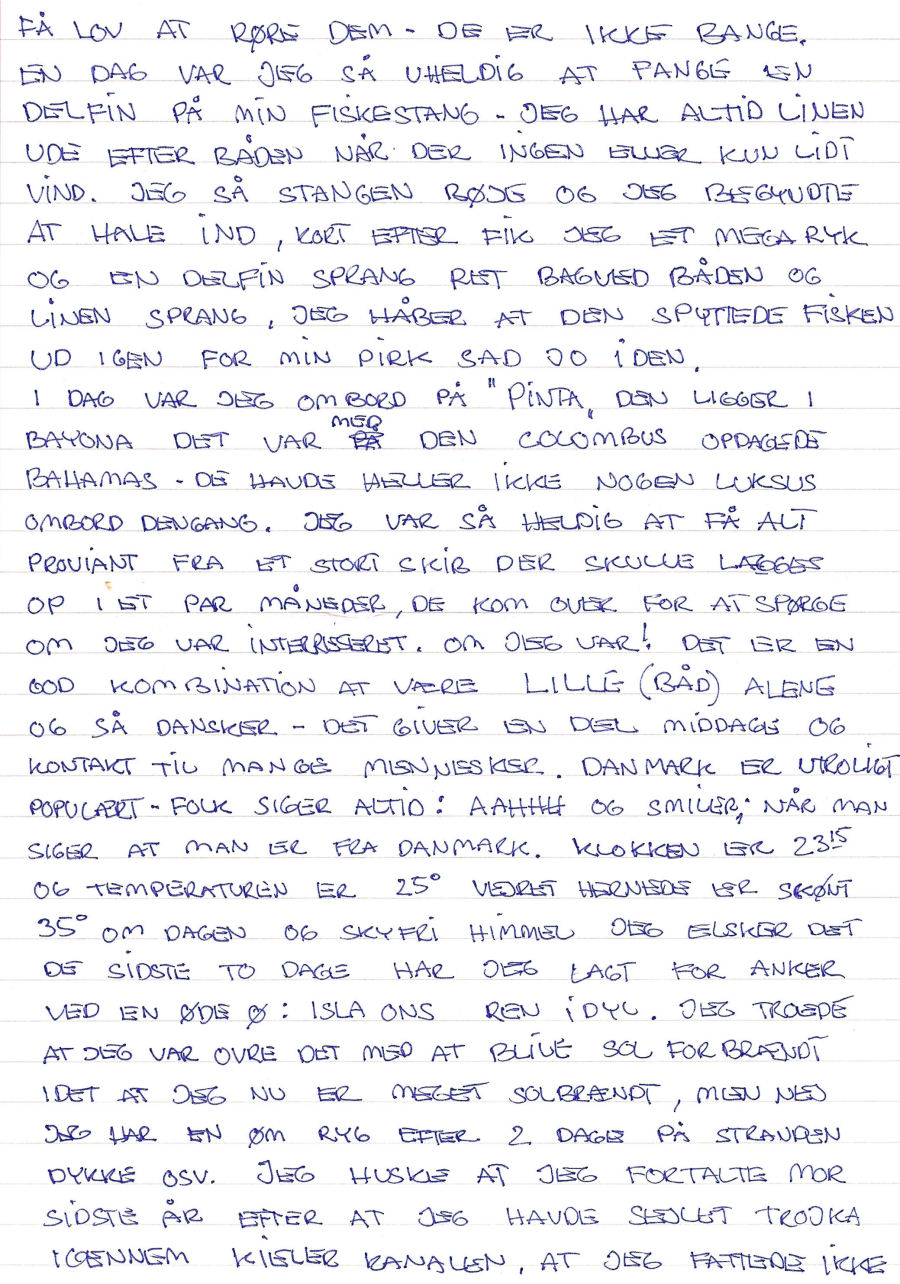 FÅ LOV AT RØRE DEM - DE ER IKKE BANGE.
EN DAG VAR JEG SÅ UHELDIG AT FANGE EN
DELFIN PÅ MIN FISKESTANG - JEG HAR ALTID LINEN
UDE EFTER BÅDEN NÅR DER INGEN ELLER KUN LIDT
VIND. JEG SÅ STANGEN BØJE OG JEG BEGYNDTE
AT HALE IND, KORT EFTER FIK JEG ET MEGA RYK
OG EN DELFIN SPRANG RET BAGVED BÅDEN OG
LINEN SPRANG, JEG HÅBER AT DEN SPYTTEDE FISKEN
UD IGEN FOR MIN PIRK SAD JO I DEN.
I DAG VAR JEG OMBORD PÅ "PINTA" DEN LIGGER I
BAYONA DET VAR MED DEN COLOMBUS OPDAGEDE
BAHAMAS - DE HAVDE HELLER IKKE NOGEN LUKSUS
OMBORD DENGANG. JEG VAR SÅ HELDIG AT FÅ ALT
PROVIANT FRA ET STORT SKIB DER SKULLE LÆGGES
OP I ET PAR MÅNEDER, DE KOM OVER FOR AT SPØRGE
OM JEG VAR INTERRISSERET. OM JEG VAR! DET ER EN
GOD KOMBINATION AT VÆRE LILLE (BÅD) ALENE
OG SÅ DANSKER - DET GIVER EN DEL MIDDAGE OG
KONTAKT TIL MANGE MENNESKER. DANMARK ER UTROLIGT
POPULÆRT - FOLK SIGER ALTID: AAHHH OG SMILER, NÅR MAN
SIGER AT MAN ER FRA DANMARK. KLOKKEN ER 23¹⁵
OG TEMPERATUREN ER 25° VEJRET HERNEDE ER SKØNT
35° OM DAGEN OG SKYFRI HIMMEL JEG ELSKER DET
DE SIDSTE TO DAGE HAR JEG LAGT FOR ANKER
VED EN ØDE Ø: ISLA ONS REN IDYL. JEG TROEDE
AT JEG VAR OVRE DET MED AT BLIVE SOL FORBRÆNDT
IDET AT JEG NU ER MEGET SOLBRÆNDT, MEN NEJ
JEG HAR EN ØM RYG EFTER 2 DAGE PÅ STRANDEN
DYKKE OSV. JEG HUSKE AT JEG FORTALTE MOR
SIDSTE ÅR EFTER AT JEG HAVDE SEJLET TROJKA
IGENNEM KIELER KANALEN, AT JEG FATTEDE IKKE